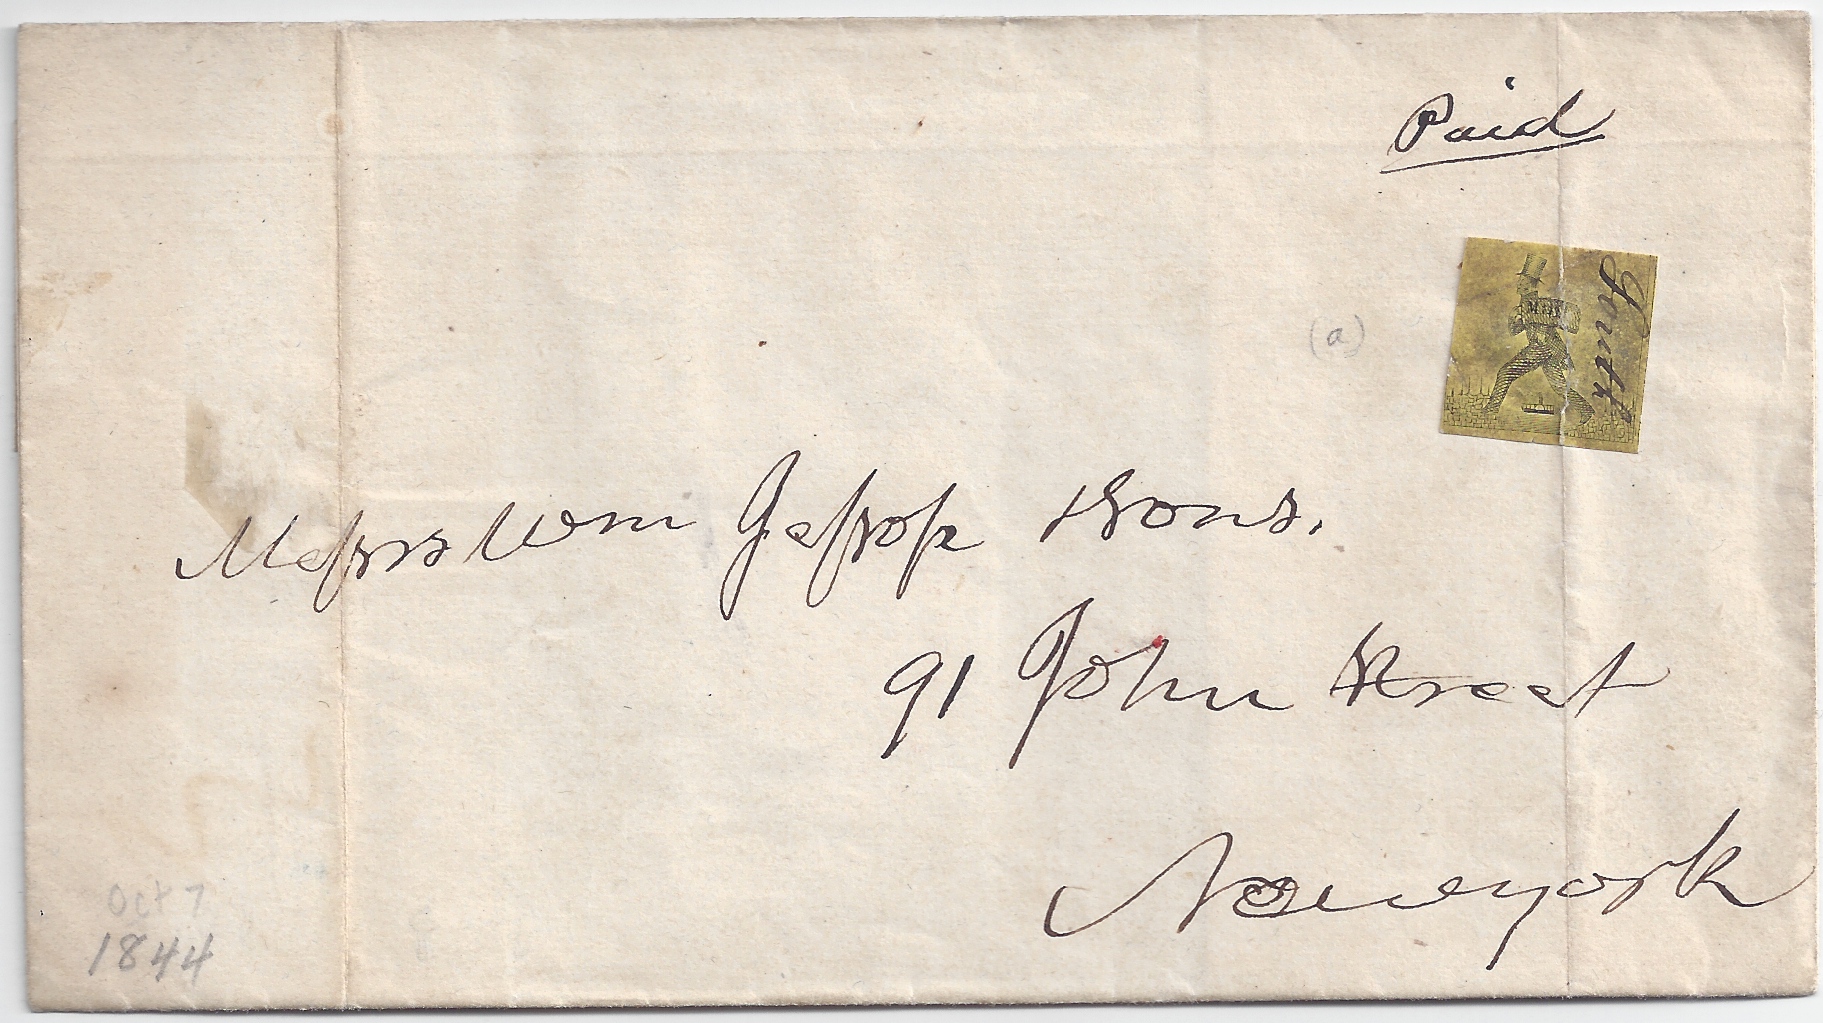 Paid
South
MAIL
(a)
Messrs Wm Jessop & Sons.
91 John Street
New york
Oct 7
1844